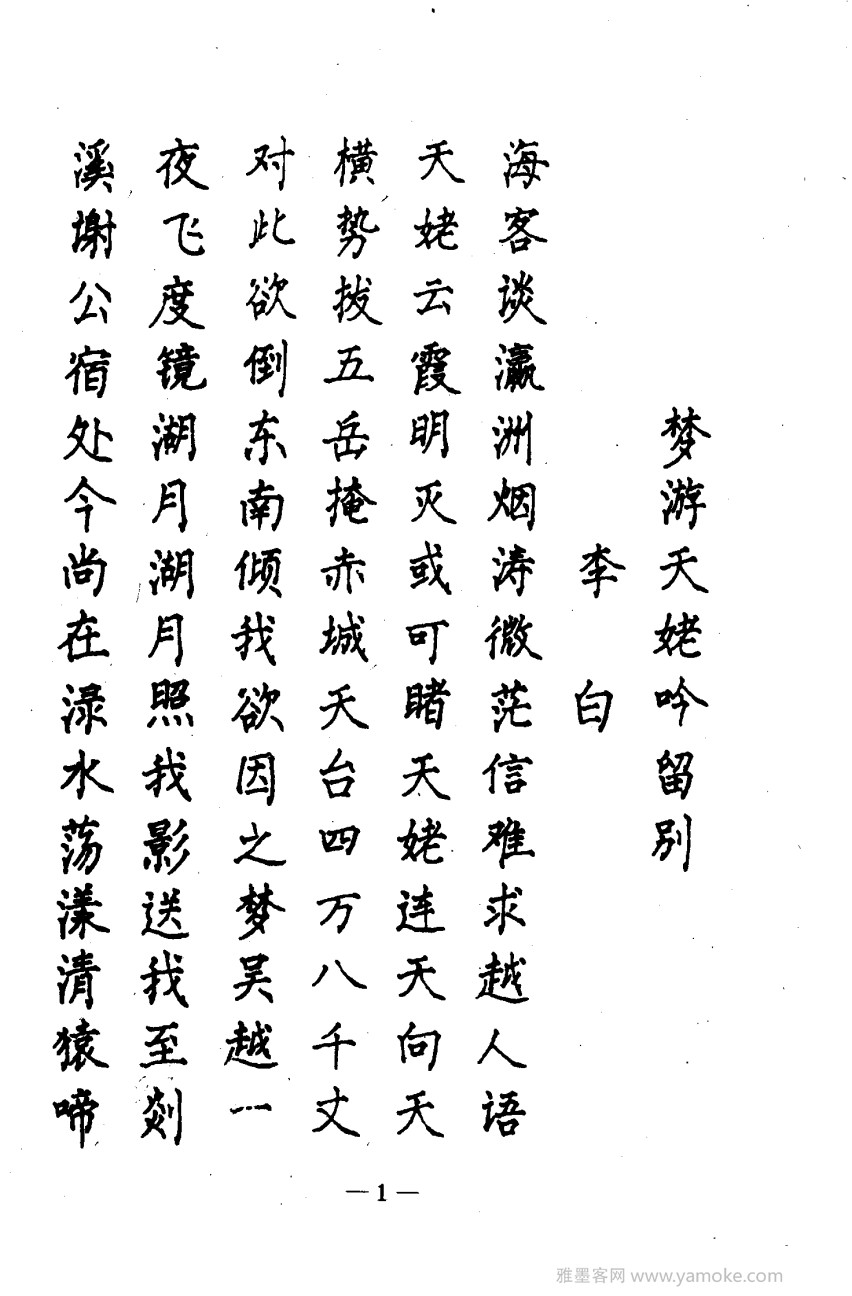 梦游天姥吟留别
李白
海客谈瀛洲烟涛微茫信难求越人语
天姥云霞明灭或可睹天姥连天向天
横势拔五岳掩赤城天台四万八千丈
对此欲倒东南倾我欲因之梦吴越一
夜飞度镜湖月湖月照我影送我至剡
溪谢公宿处今尚在渌水荡漾清猿啼
— 1 —
雅墨客网 www.yamoke.com